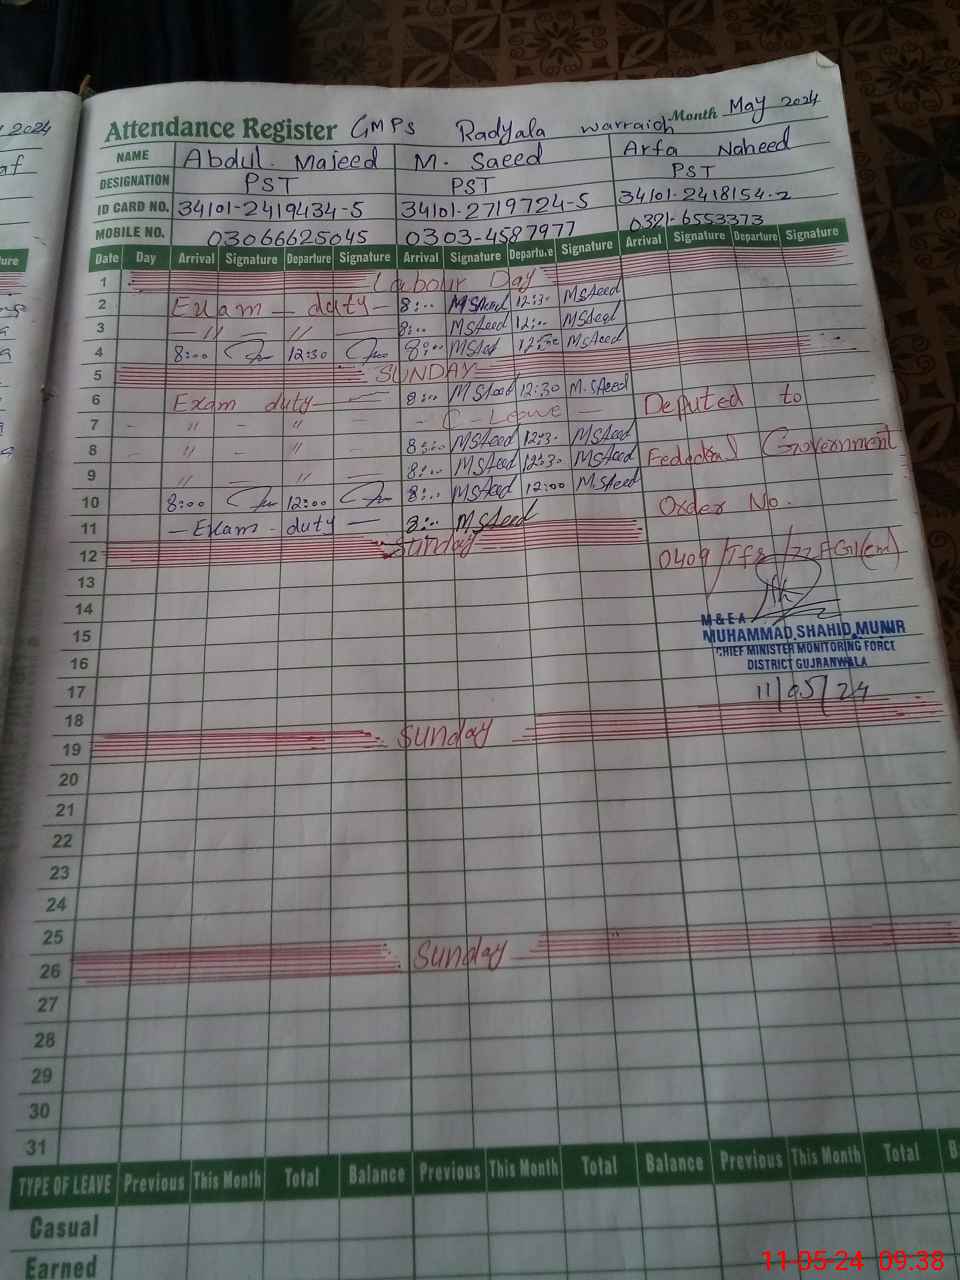 2024
af
ture
Attendance Register GMPS Radyala warraich Month May 2024
NAME Abdul Majeed M. Saeed Arfa Naheed
DESIGNATION PST PST PST
ID CARD NO. 34101-2419434-5 34101-2719724-5 34101-2418154-2
MOBILE NO. 03066625045 0303-4587977 0321-6553373
Date Day Arrival Signature Departure Signature Arrival Signature Departure Signature Arrival Signature Departure Signature
1 Labour Day
2 Exam duty 8:00 MSAeed 12:30 MSAeed
3 — // — // 8:00 MSAeed 12:00 MSAeed
4 8:00 12:30 8:00 MSAeed MSAeed
5 SUNDAY
6 Exam duty 8:00 MSAeed 12:30 M.SAeed Deputed to
7 - // - // - - C-Leave -
8 - // - // - 8:00 MSAeed 12:30 MSAeed Federal Government
9 // - // - 8:00 MSAeed 12:30 MSAeed
10 8:00 12:00 8:00 MSAeed 12:00 MSAeed Order No.
11 — Exam - duty — 8:00 MSAeed
12 Sunday 0409/Tfr/
13
14
15 M & E A
MUHAMMAD SHAHID MUNIR
16 CHIEF MINISTER MONITORING FORCE
DISTRICT GUJRANWALA
17 11/05/24
18
19 Sunday
20
21
22
23
24
25
26 Sunday
27
28
29
30
31
TYPE OF LEAVE Previous This Month Total Balance Previous This Month Total Balance Previous This Month Total B
Casual
Earned
11-05-24 09:38